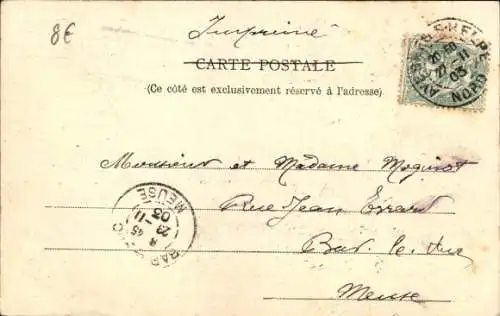 8€
Imprimé
CARTE POSTALE
(Ce côté est exclusivement réservé à l'adresse)
AVESNES-S-HELPE
NORD
27 -11
03
Monsieur et Madame Moginot
Rue Jean Errard
Bar le Duc
Meuse
BAR
MEUSE
29 -11
03